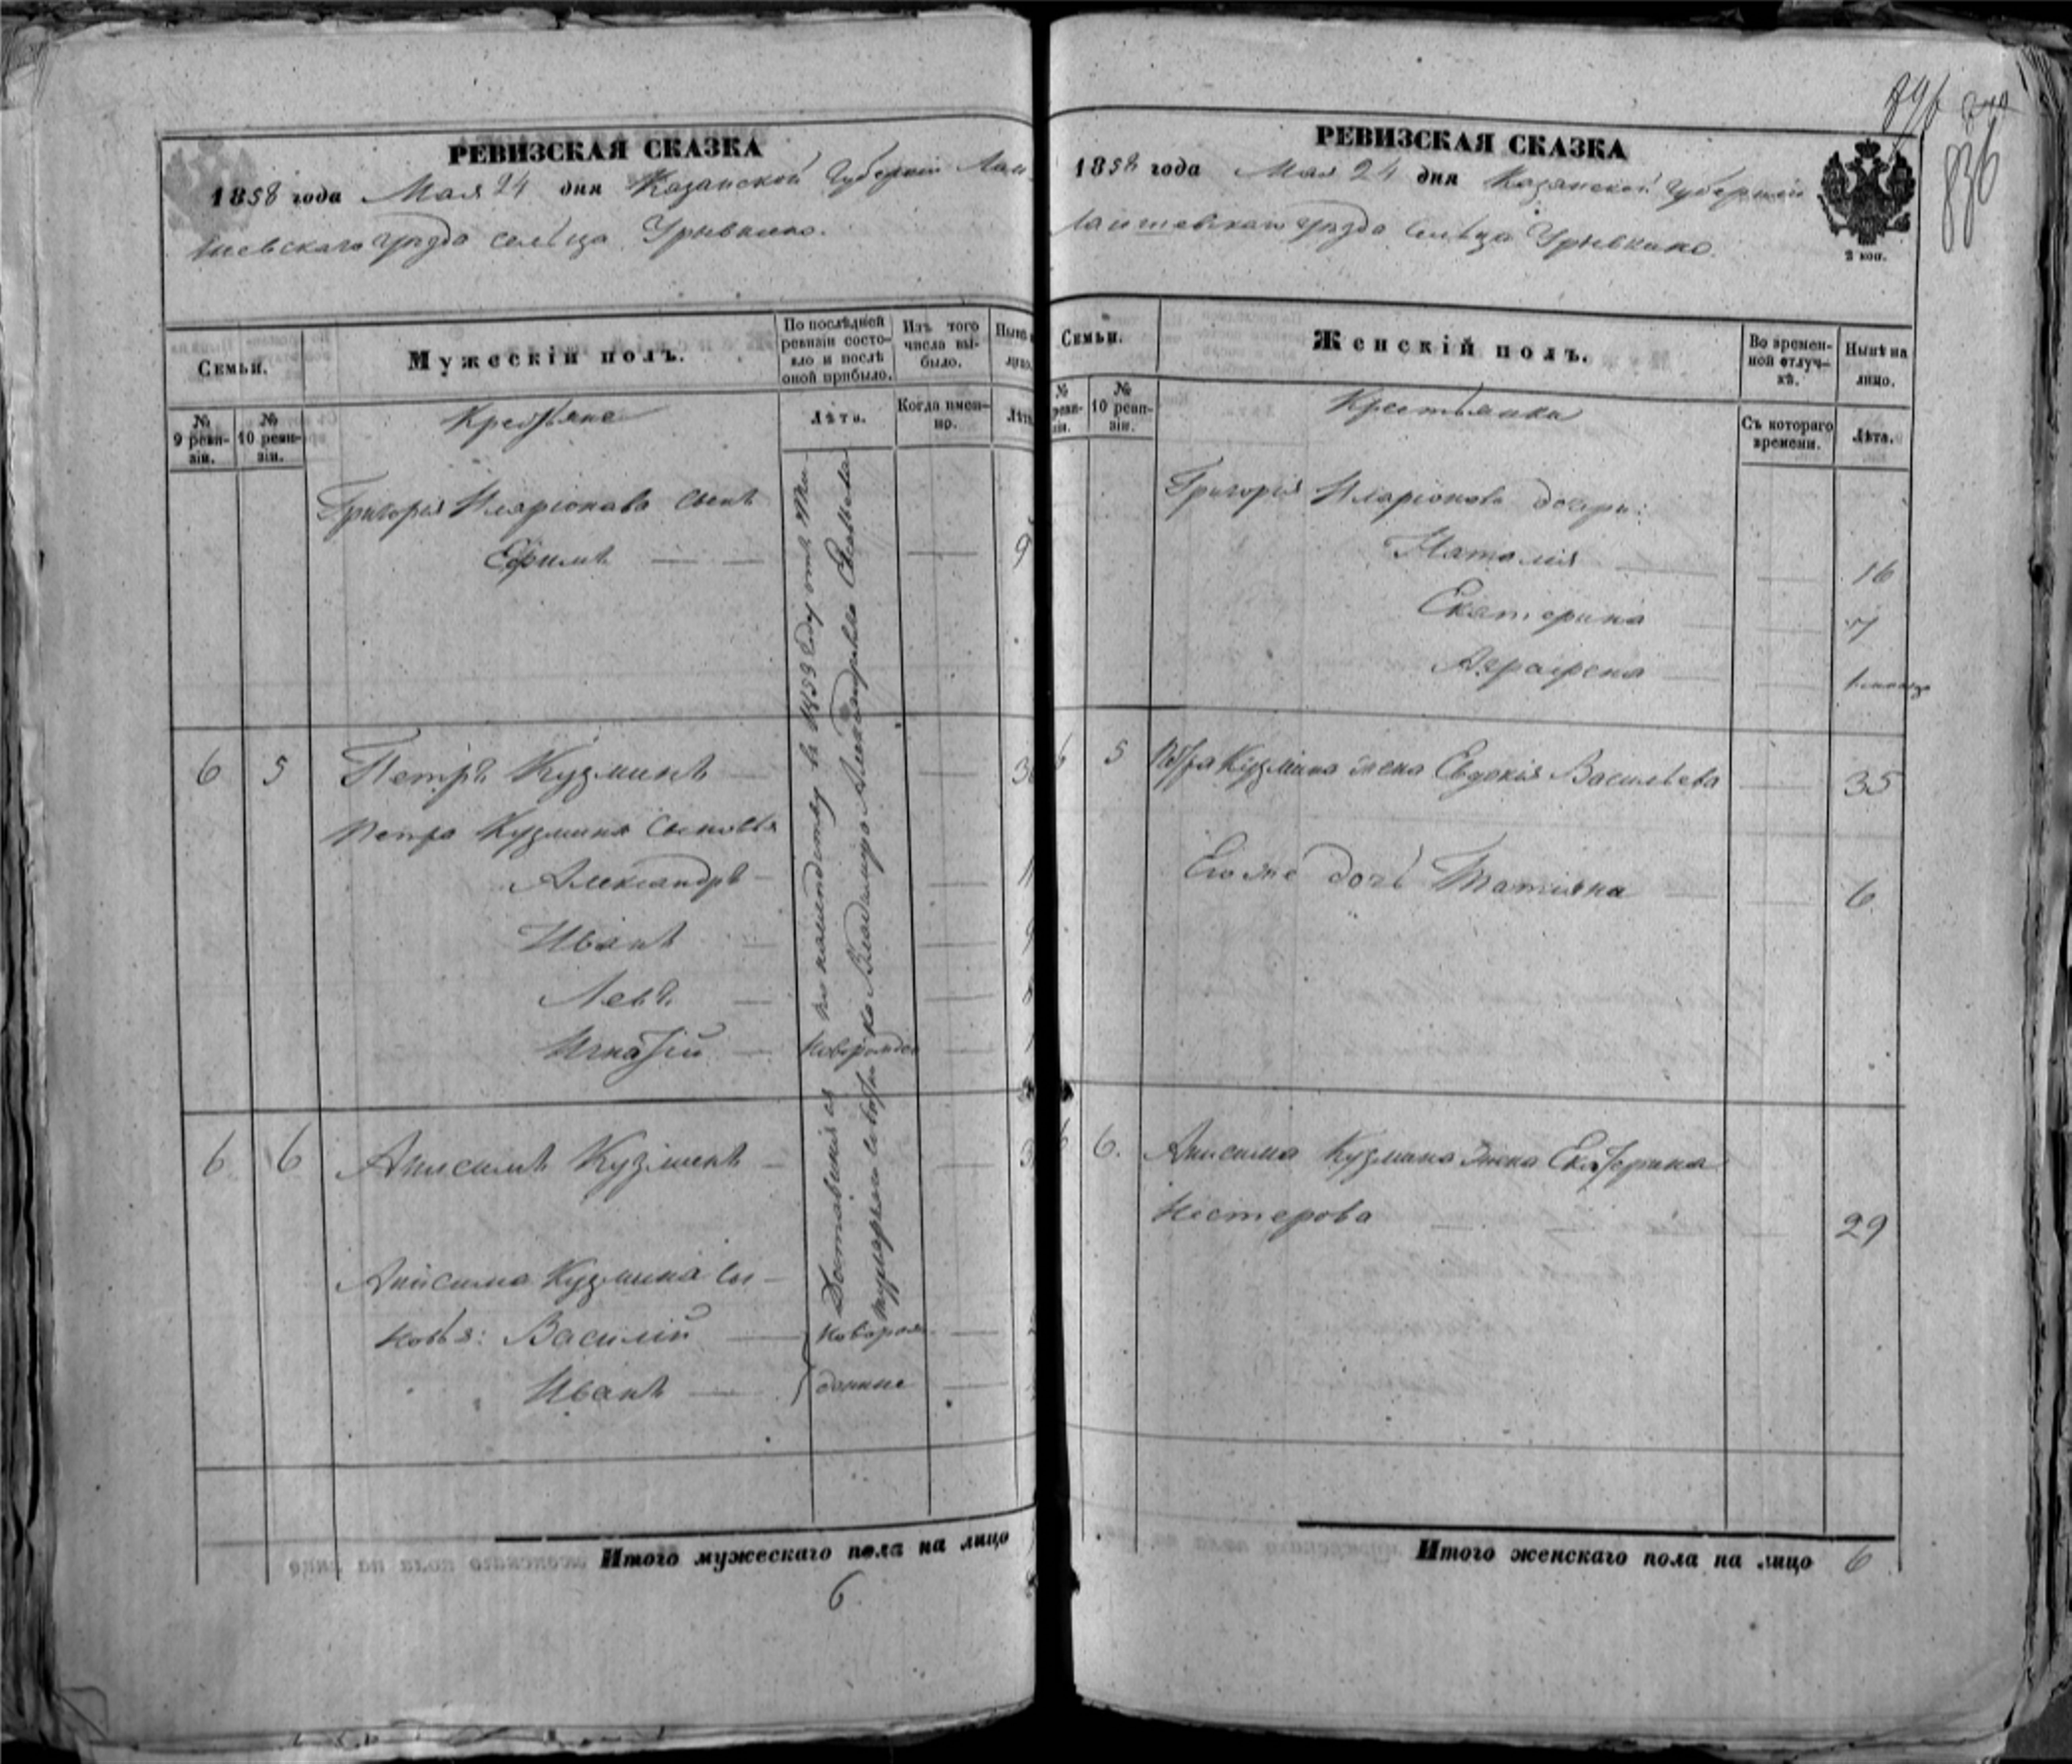 836
РЕВИЗСКАЯ СКАЗКА
1858 года Мая 24 дня Казанской Губерніи Лаи-
шевскаго уѣзда сельца Урывкино.
Семьи.
Мужескій полъ.
По послѣдней ревизіи состояло и послѣ оной прибыло.
Изъ того числа выбыло.
Нынѣ
лицо.
№ 9 ревизіи.
№ 10 ревизіи.
Крестьяне
Лѣта.
Когда именно.
Лѣта
Григорія Иларіонова сынъ
Ефимъ 9
6 5 Петръ Кузминъ
Петра Кузмина сыновья
Александръ
Иванъ
Левъ
Игнатій новорожден
6 6 Анисимъ Кузминъ
Анисима Кузмина сы-
новья: Василій новорож-
Иванъ денные
Доставшіяся по наслѣдству въ 1853 году отъ
Владимира Александрова
Итого мужескаго пола на лицо
6
РЕВИЗСКАЯ СКАЗКА
1858 года Мая 24 дня Казанской Губерніи
Лаишевскаго уѣзда сельца Урывкино.
2 коп.
Семьи.
Женскій полъ.
Во временной отлучкѣ.
Нынѣ на лицо.
№ реви-зіи.
№ 10 ревизіи.
Крестьянки
Съ котораго времени.
Лѣта.
Григорія Иларіонова дочери:
Наталія 16
Екатерина 7
Аграфена
6 5 Петра Кузмина жена Евдокія Васильева 35
Его же дочь Татіяна 6
6 6. Анисима Кузмина жена Екатерина
Нестерова 29
Итого женскаго пола на лицо 6